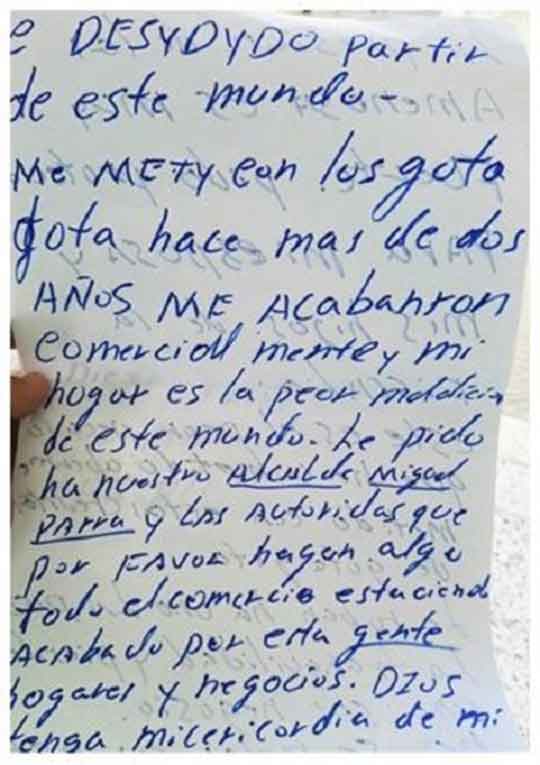 e DESYDYDO partir
de este mundo-
Me METY con los gota
gota hace mas de dos
AÑOS ME Acabanron
comercial mente y mi
hogar es la peor maldicion
de este mundo. Le pido
ha nuestro Alcalde Miguel
PArra y LAS Autoridas que
por FAVOR hagan algo
todo el comercio esta ciend
AcAbado por esta gente
hogares y negocios. DIOS
tenga micericordia de mi